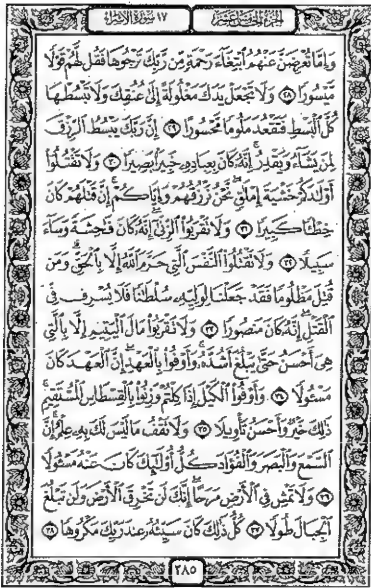 الجزء الخامس عشر
١٧ سورة الإسراء
وَإِمَّا تُعْرِضَنَّ عَنْهُمُ ٱبْتِغَآءَ رَحْمَةٍ مِّن رَّبِّكَ تَرْجُوهَا فَقُل لَّهُمْ قَوْلًا
مَّيْسُورًا ٢٨ وَلَا تَجْعَلْ يَدَكَ مَغْلُولَةً إِلَىٰ عُنُقِكَ وَلَا تَبْسُطْهَا
كُلَّ ٱلْبَسْطِ فَتَقْعُدَ مَلُومًا مَّحْسُورًا ٢٩ إِنَّ رَبَّكَ يَبْسُطُ ٱلرِّزْقَ
لِمَن يَشَآءُ وَيَقْدِرُ إِنَّهُۥ كَانَ بِعِبَادِهِۦ خَبِيرًۢا بَصِيرًا ٣٠ وَلَا تَقْتُلُوٓا۟
أَوْلَـٰدَكُمْ خَشْيَةَ إِمْلَـٰقٍ نَّحْنُ نَرْزُقُهُمْ وَإِيَّاكُمْ إِنَّ قَتْلَهُمْ كَانَ
خِطْـًٔا كَبِيرًا ٣١ وَلَا تَقْرَبُوا۟ ٱلزِّنَىٰٓ إِنَّهُۥ كَانَ فَـٰحِشَةً وَسَآءَ
سَبِيلًا ٣٢ وَلَا تَقْتُلُوا۟ ٱلنَّفْسَ ٱلَّتِى حَرَّمَ ٱللَّهُ إِلَّا بِٱلْحَقِّ وَمَن
قُتِلَ مَظْلُومًا فَقَدْ جَعَلْنَا لِوَلِيِّهِۦ سُلْطَـٰنًا فَلَا يُسْرِف فِّى
ٱلْقَتْلِ إِنَّهُۥ كَانَ مَنصُورًا ٣٣ وَلَا تَقْرَبُوا۟ مَالَ ٱلْيَتِيمِ إِلَّا بِٱلَّتِى
هِىَ أَحْسَنُ حَتَّىٰ يَبْلُغَ أَشُدَّهُۥ وَأَوْفُوا۟ بِٱلْعَهْدِ إِنَّ ٱلْعَهْدَ كَانَ
مَسْـُٔولًا ٣٤ وَأَوْفُوا۟ ٱلْكَيْلَ إِذَا كِلْتُمْ وَزِنُوا۟ بِٱلْقِسْطَاسِ ٱلْمُسْتَقِيمِ
ذَٰلِكَ خَيْرٌ وَأَحْسَنُ تَأْوِيلًا ٣٥ وَلَا تَقْفُ مَا لَيْسَ لَكَ بِهِۦ عِلْمٌ إِنَّ
ٱلسَّمْعَ وَٱلْبَصَرَ وَٱلْفُؤَادَ كُلُّ أُو۟لَـٰٓئِكَ كَانَ عَنْهُ مَسْـُٔولًا
٣٦ وَلَا تَمْشِ فِى ٱلْأَرْضِ مَرَحًا إِنَّكَ لَن تَخْرِقَ ٱلْأَرْضَ وَلَن تَبْلُغَ
ٱلْجِبَالَ طُولًا ٣٧ كُلُّ ذَٰلِكَ كَانَ سَيِّئُهُۥ عِندَ رَبِّكَ مَكْرُوهًا ٣٨
٢٨٥